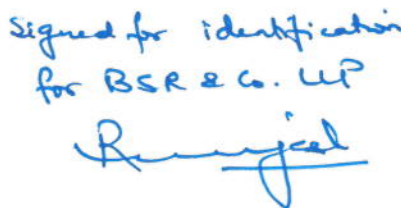 Signed for identification
for BSR & Co. LLP